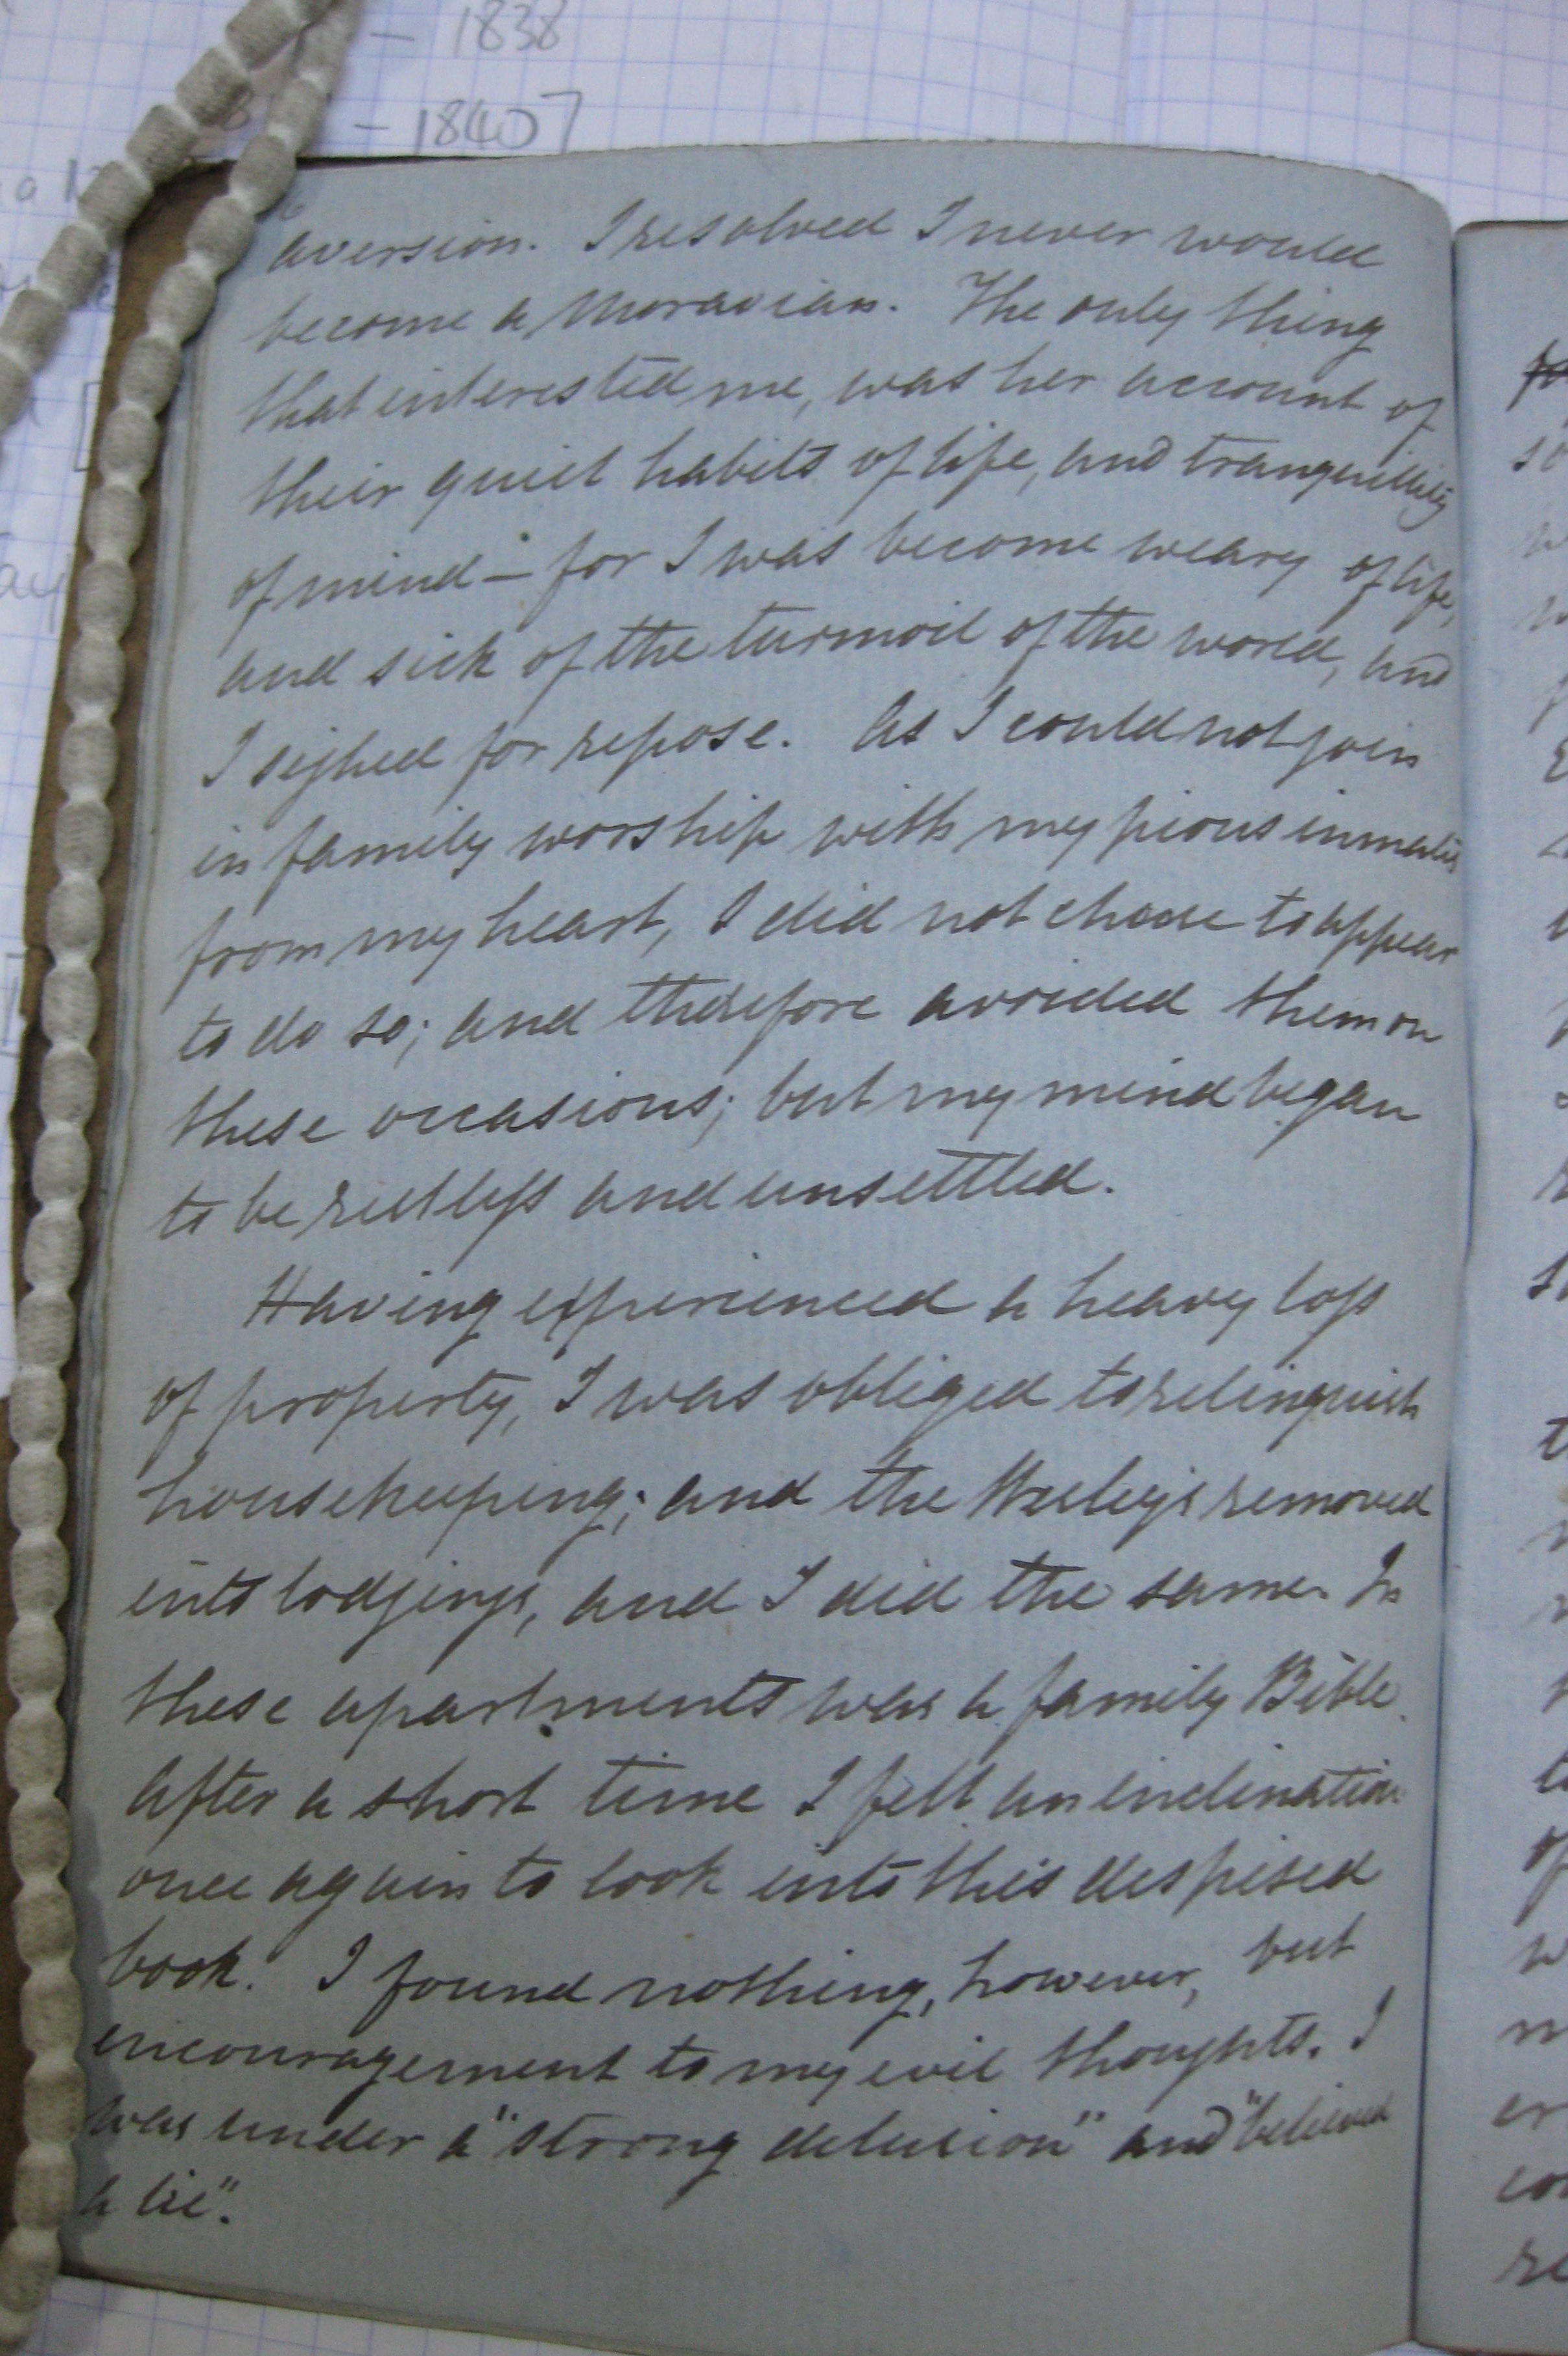 - 1838
- 1840]
6
aversion. I resolved I never would
become a Moravian. The only thing
that interested me, was her account of
their quiet habits of life, and tranquillity
of mind – for I was become weary of life,
and sick of the turmoil of the world, and
I sighed for repose. As I could not join
in family worship with my pious inmates
from my heart, I did not choose to appear
to do so; and therefore avoided them on
these occasions; but my mind began
to be restless and unsettled.
Having experienced a heavy loss
of property, I was obliged to relinquish
housekeeping; and the Wesleys removed
into lodgings, and I did the same. In
these apartments was a family Bible.
After a short time I felt an inclination
once again to look into this despised
book. I found nothing, however, but
encouragement to my evil thoughts. I
was under a "strong delusion" and "believed
a lie".